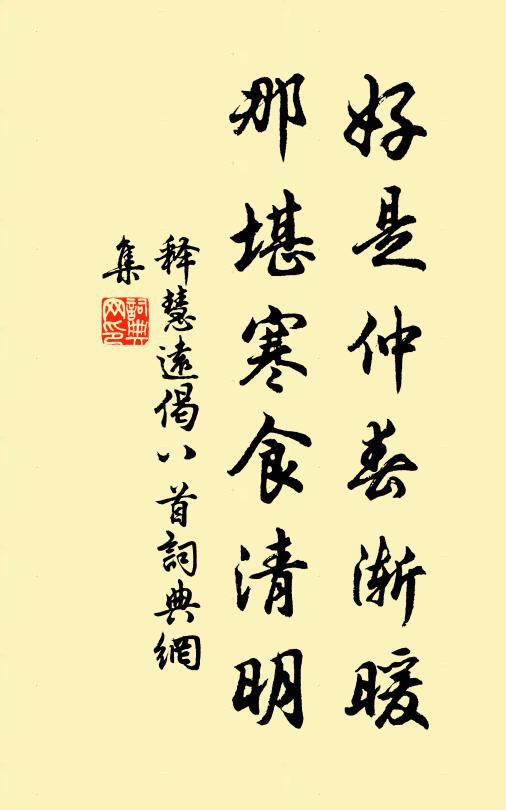 好是仲春渐暖
那堪寒食清明
释慧远偈八首詞典網
集
詞典網印